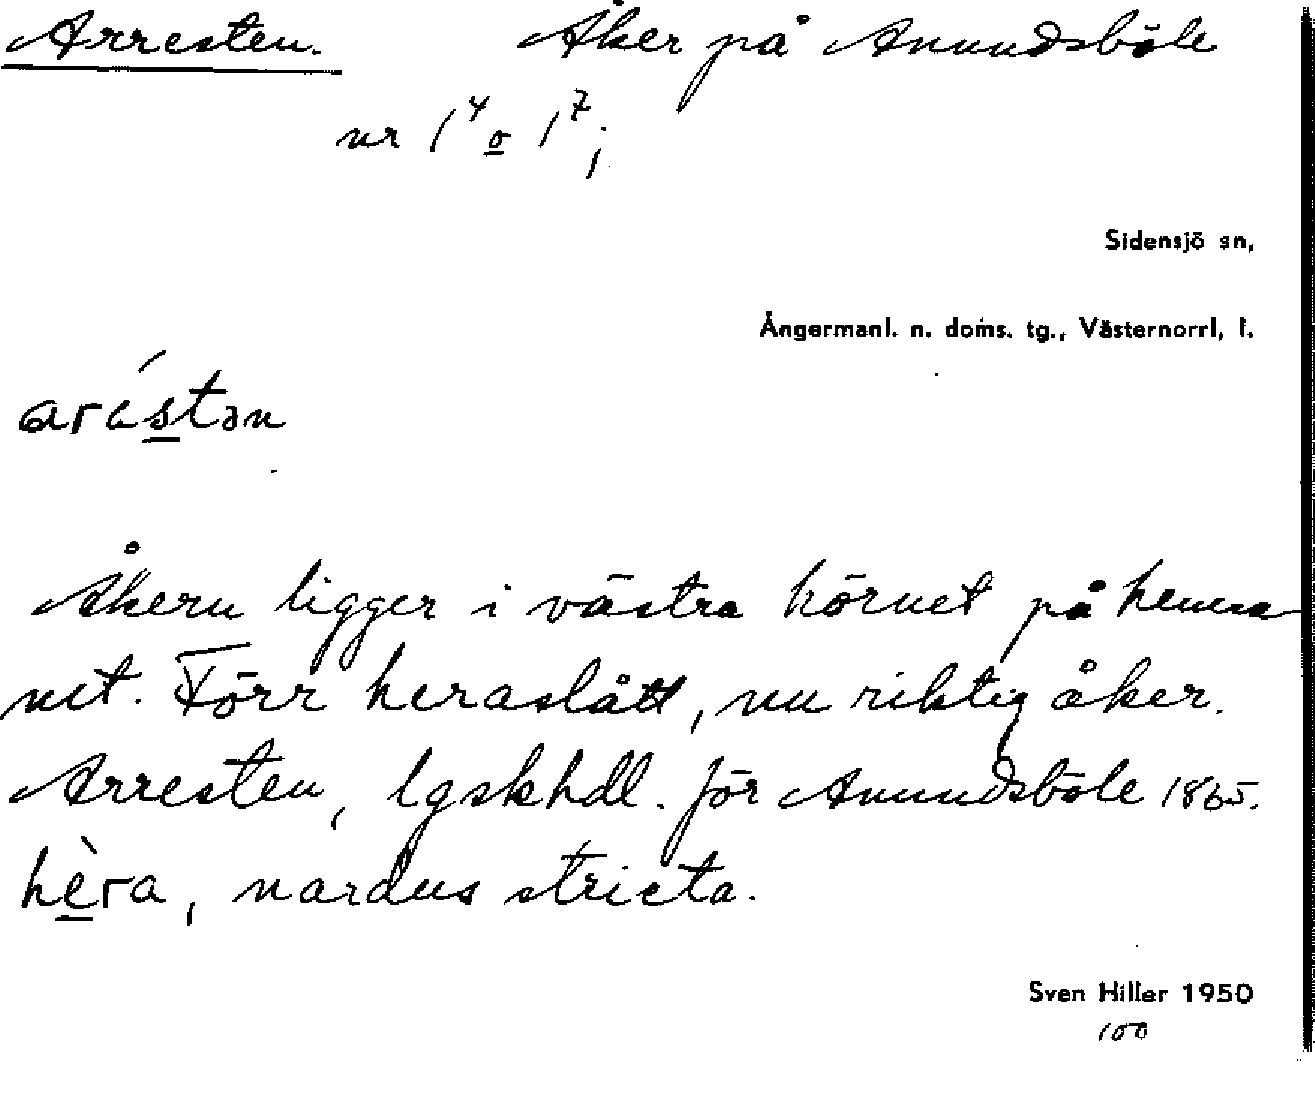 Arresten. Åker på Anundsböle
nr 1⁴ o 1⁷;
Sidensjö sn,
Ångermanl. n. doms. tg., Västernorrl. l.
aréstən
Åkern ligger i västra hörnet på hemma
net. Förr heraslått, nu riktig åker.
Arresten, lgskhdl. för Anundsböle 1865.
hèra, nardus stricta.
Sven Hiller 1950
100